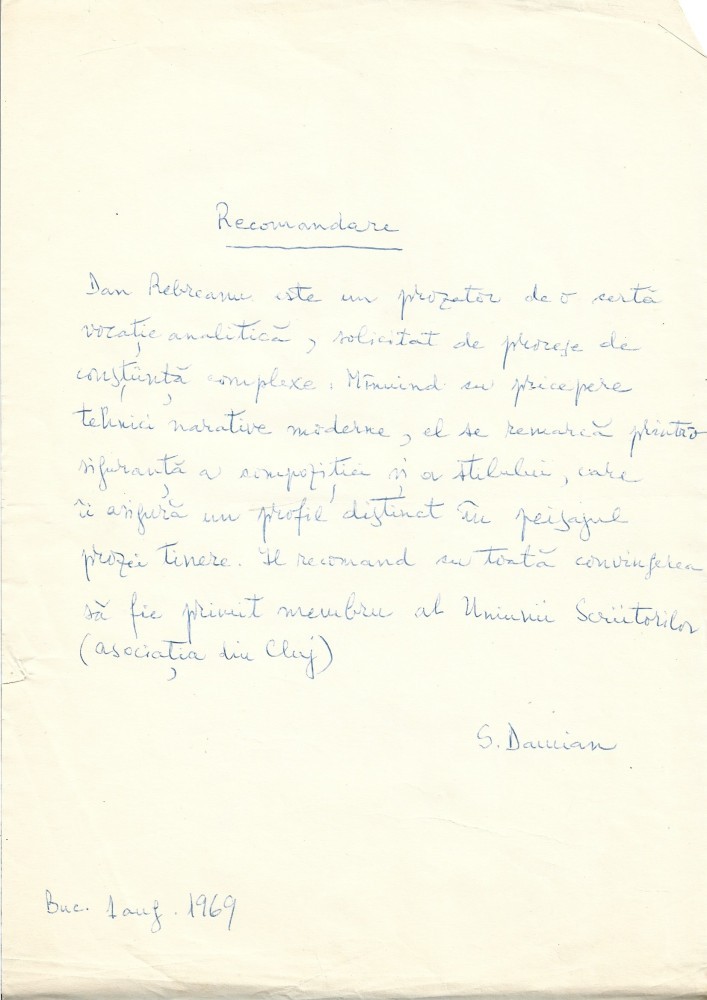 Recomandare
Dan Rebreanu este un prozator de o certă
vocație analitică, solicitat de procese de
conștiință complexe. Mînuind cu pricepere
tehnici narative moderne, el se remarcă printr-o
siguranță a compoziției și a stilului, care
îi asigură un profil distinct în peisajul
prozei tinere. Il recomand cu toată convingerea
să fie primit membru al Uniunii Scriitorilor
(asociația din Cluj)
S. Damian
Buc. 1 aug. 1969